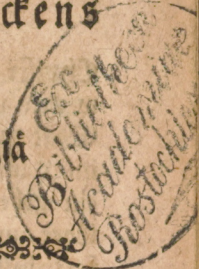 ckens
Ex
Bibliotheca
Academiae
iä
Rostochie